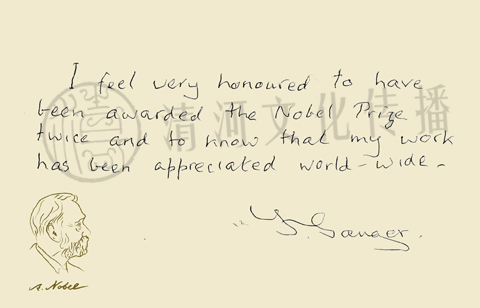 I feel very honoured to have
been awarded the Nobel Prize
twice and to know that my work
has been appreciated world-wide.
清河文化传播
F. Sanger.
A. Nobel